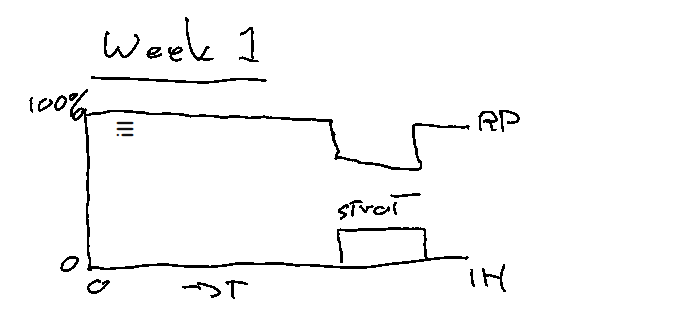 Week 1
100%
RP
strat
0
0
→T
1H